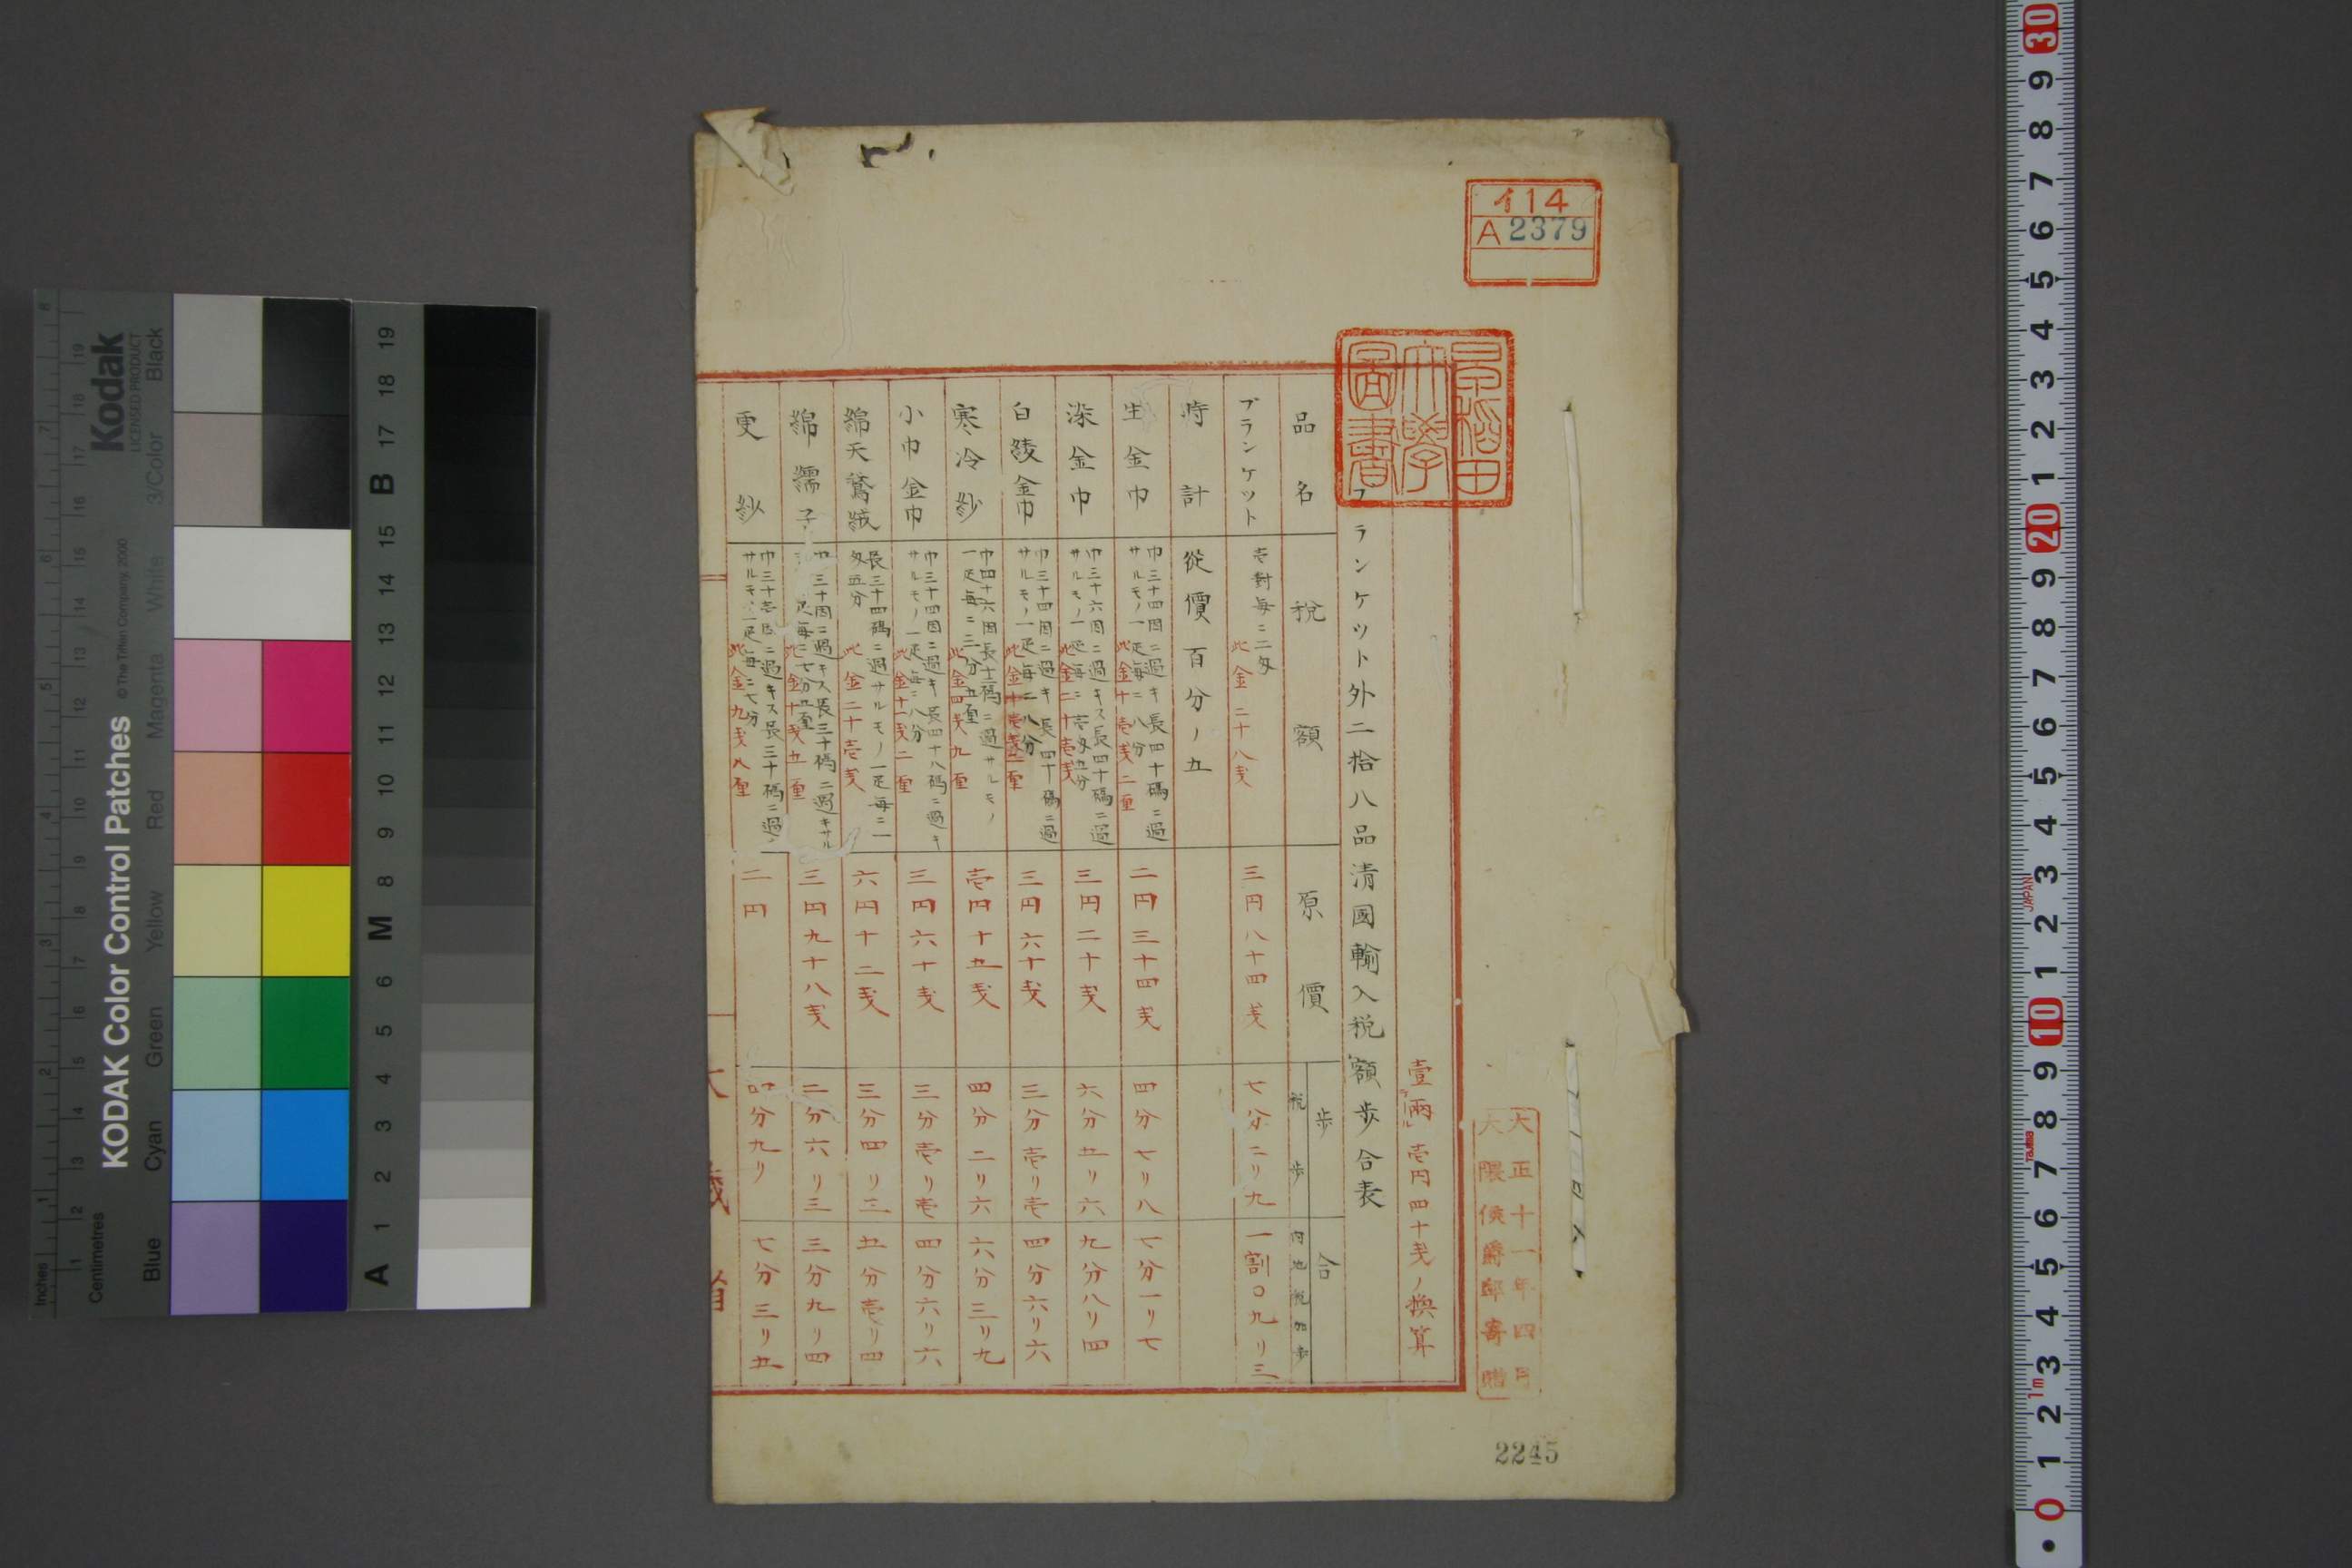 イ14
A2379
早稲田大學圖書
大正十一年四月
大隈侯爵邸寄贈
壹両壱円四十戋ノ換算
ブランケット外二拾八品清國輸入税額歩合表
品名
税額
原價
歩合
税歩
内地税加歩
ブランケット
壱對毎ニ二匁
此金二十八戋
三円八十四戋
七分二リ九
一割〇九リ三
時計
從價百分ノ五
生金巾
巾三十四因ニ過キ長四十碼ニ過
サルモノ一疋毎ニ八分
此金十壱戋二厘
二円三十四戋
四分七リ八
七分一リ七
染金巾
巾三十六因ニ過キス長四十碼ニ過
サルモノ一疋毎ニ壱匁五分
此金二十壱戋
三円二十戋
六分五リ六
九分八リ四
白綾金巾
巾三十四因ニ過キ長四十碼ニ過
サルモノ一疋毎ニ八分
此金十壱戋二厘
三円六十戋
三分壱リ壱
四分六リ六
寒冷紗
巾四十六因長十二碼ニ過サルモノ
一疋毎ニ三分五厘
此金四戋九厘
壱円十五戋
四分二リ六
六分三リ九
小巾金巾
巾三十四因ニ過キ長四十八碼ニ過キ
サルモノ一疋毎ニ八分
此金十一戋二厘
三円六十戋
三分壱リ壱
四分六リ六
綿天鵞絨
長三十四碼ニ過サルモノ一疋毎ニ一
匁五分
此金二十壱戋
六円十二戋
三分四リ三
五分壱リ四
綿繻子
巾三十四ニ過キス長三十碼ニ過キサル
疋毎ニ七分五厘
此金十戋五厘
三円九十八戋
二分六リ三
三分九リ四
更紗
巾三十壱因ニ過キス長三十碼ニ過
サルモノ一疋毎ニ七分
此金九戋八厘
二円
四分九リ
七分三リ五
2245
Kodak
LICENSED PRODUCT
KODAK Color Control Patches
© The Tiffen Company, 2000
Inches
Centimetres
Blue
Cyan
Green
Yellow
Red
Magenta
White
3/Color
Black
A 1 2 3 4 5 6 M 8 9 10 11 12 13 14 15 B 17 18 19
JAPAN